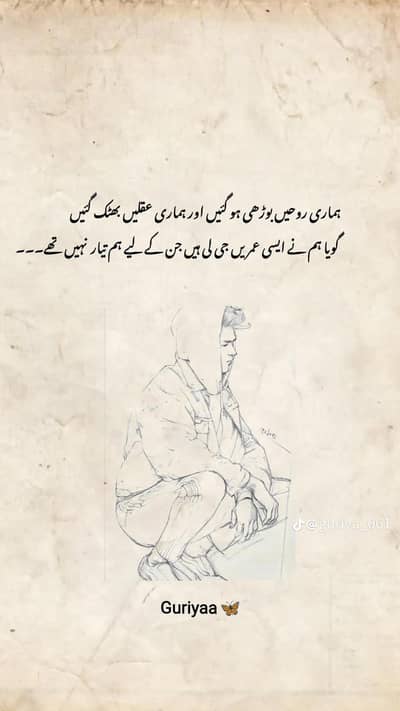 ہماری روحیں بوڑھی ہو گئیں اور ہماری عقلیں بھٹک گئیں
گویا ہم نے ایسی عمریں جی لی ہیں جن کے لیے ہم تیار نہیں تھے۔۔۔
Guriyaa 🦋